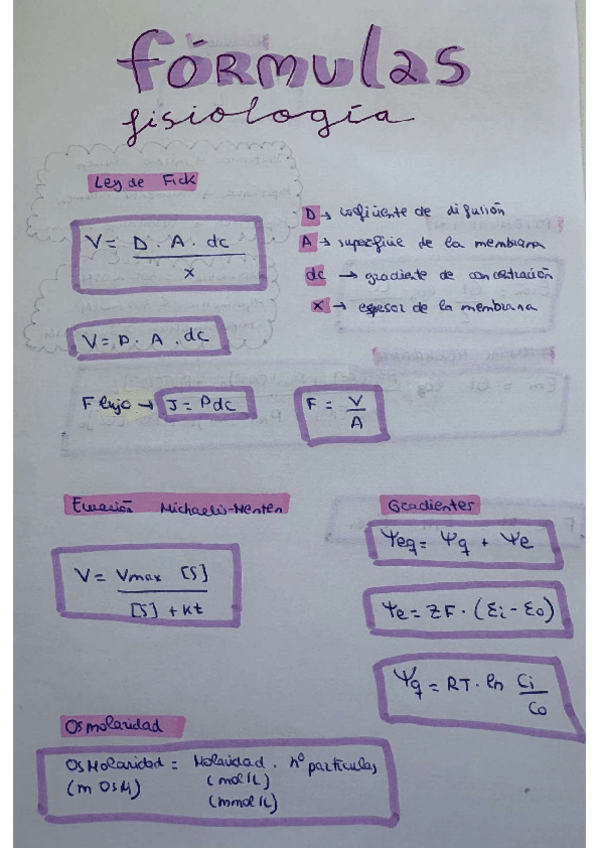 fórmulas
fisiología
Ley de Fick
V = D · A · dc / x
D → coeficiente de difusión
A → superficie de la membrana
dc → gradiente de concentración
x → espesor de la membrana
V = P · A · dc
Flujo → J = P dc
F = V / A
Ecuación Michaelis-Menten
V = Vmax [S] / [S] + kt
Gradientes
Ψeq = Ψq + Ψe
Ψe = ZF · (Ɛi - Ɛo)
Ψq = RT · ln Ci / Co
Osmolaridad
Osmolaridad = Molaridad · nº partículas
(mOsM) (mol/L)
(mmol/L)